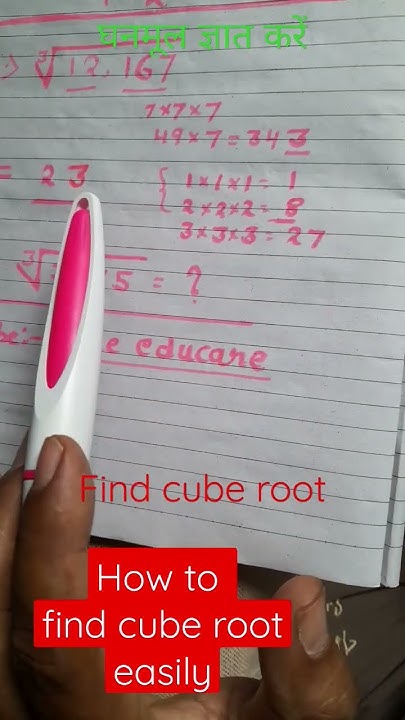 घनमूल ज्ञात करें
∛12,167
7×7×7
49×7=343
= 23
1×1×1= 1
2×2×2= 8
3×3×3=27
5 = ?
educare
Find cube root
How to
find cube root
easily